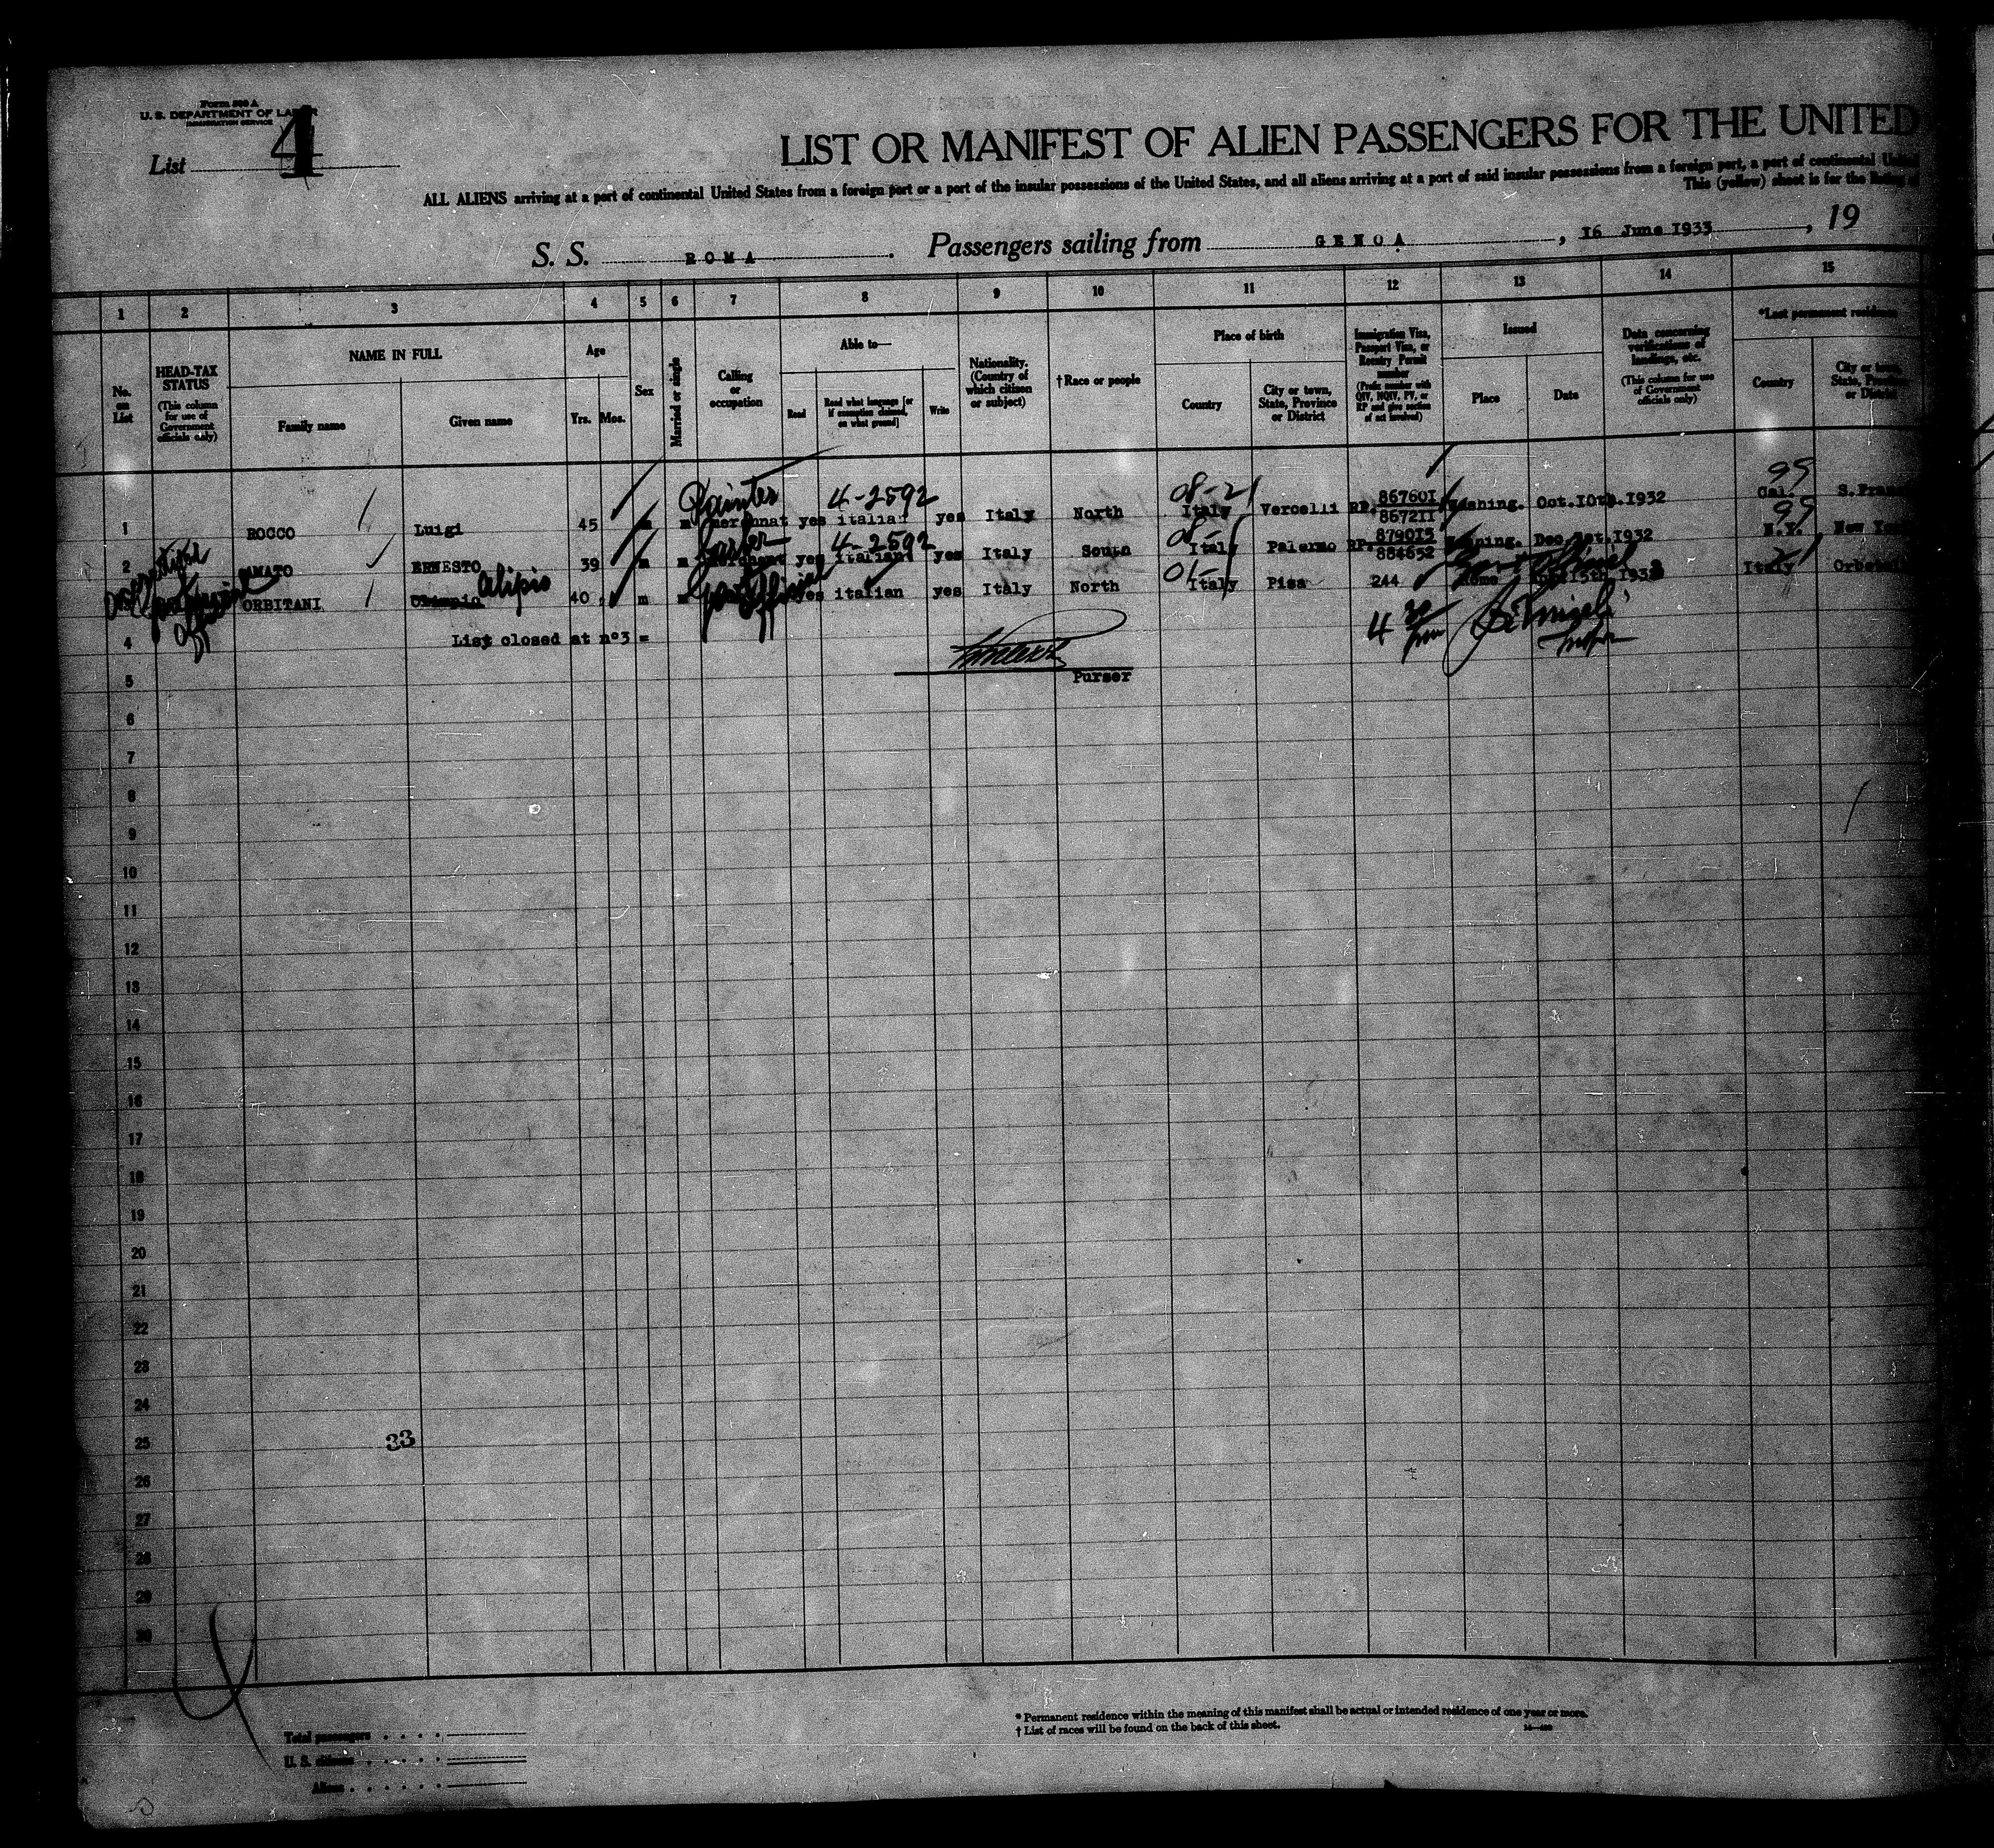 Form 500 A
U. S. DEPARTMENT OF LABOR
IMMIGRATION SERVICE
List 4
LIST OR MANIFEST OF ALIEN PASSENGERS FOR THE UNITED
ALL ALIENS arriving at a port of continental United States from a foreign port or a port of the insular possessions of the United States, and all aliens arriving at a port of said insular possessions from a foreign port, a port of continental
This (yellow) sheet is for the
S. S. ROMA . Passengers sailing from GENOA , 16 June 1933 , 19
1 2 3 4 5 6 7 8 9 10 11 12 13 14 15
No. on List
HEAD-TAX STATUS (This column for use of Government officials only)
NAME IN FULL
Family name Given name
Age
Yrs. Mos.
Sex
Married or single
Calling or occupation
Able to—
Read Read what language [or if exemption claimed, on what ground] Write
Nationality. (Country of which citizen or subject)
† Race or people
Place of birth
Country City or town, State, Province or District
Immigration Visa, Passport Visa, or Reentry Permit number (Prefix number with QIV, NQIV, PV, or RP and give section of act involved)
Issued
Place Date
Data concerning verifications of landings, etc. (This column for use of Government officials only)
*Last permanent residence
Country City or town, State,
Painter 4-2592 08-21 99
1 ROCCO Luigi 45 m m merchnat yes italian yes Italy North Italy Vercelli RP. 867601 867211 Washing. Oct.10th.1932 Cal. S.Fran
4-2592 08- 99
2 AMATO ERNESTO 39 m m yes italian yes Italy South Italy Palermo RP. 879015 884652 Washing. Dec. 1st.1932 N.Y. New York
Alipio 01-
3 ORBITANI Olimpio 40 m m yes italian yes Italy North Italy Pisa 244 Rome 15th.193 Italy
4 List closed at n°3 =
4 30 pm
Purser
5
6
7
8
9
10
11
12
13
14
15
16
17
18
19
20
21
22
23
24
25 33
26
27
28
29
30
Total passengers
U. S. citizens
Aliens
* Permanent residence within the meaning of this manifest shall be actual or intended residence of one year or more.
† List of races will be found on the back of this sheet.